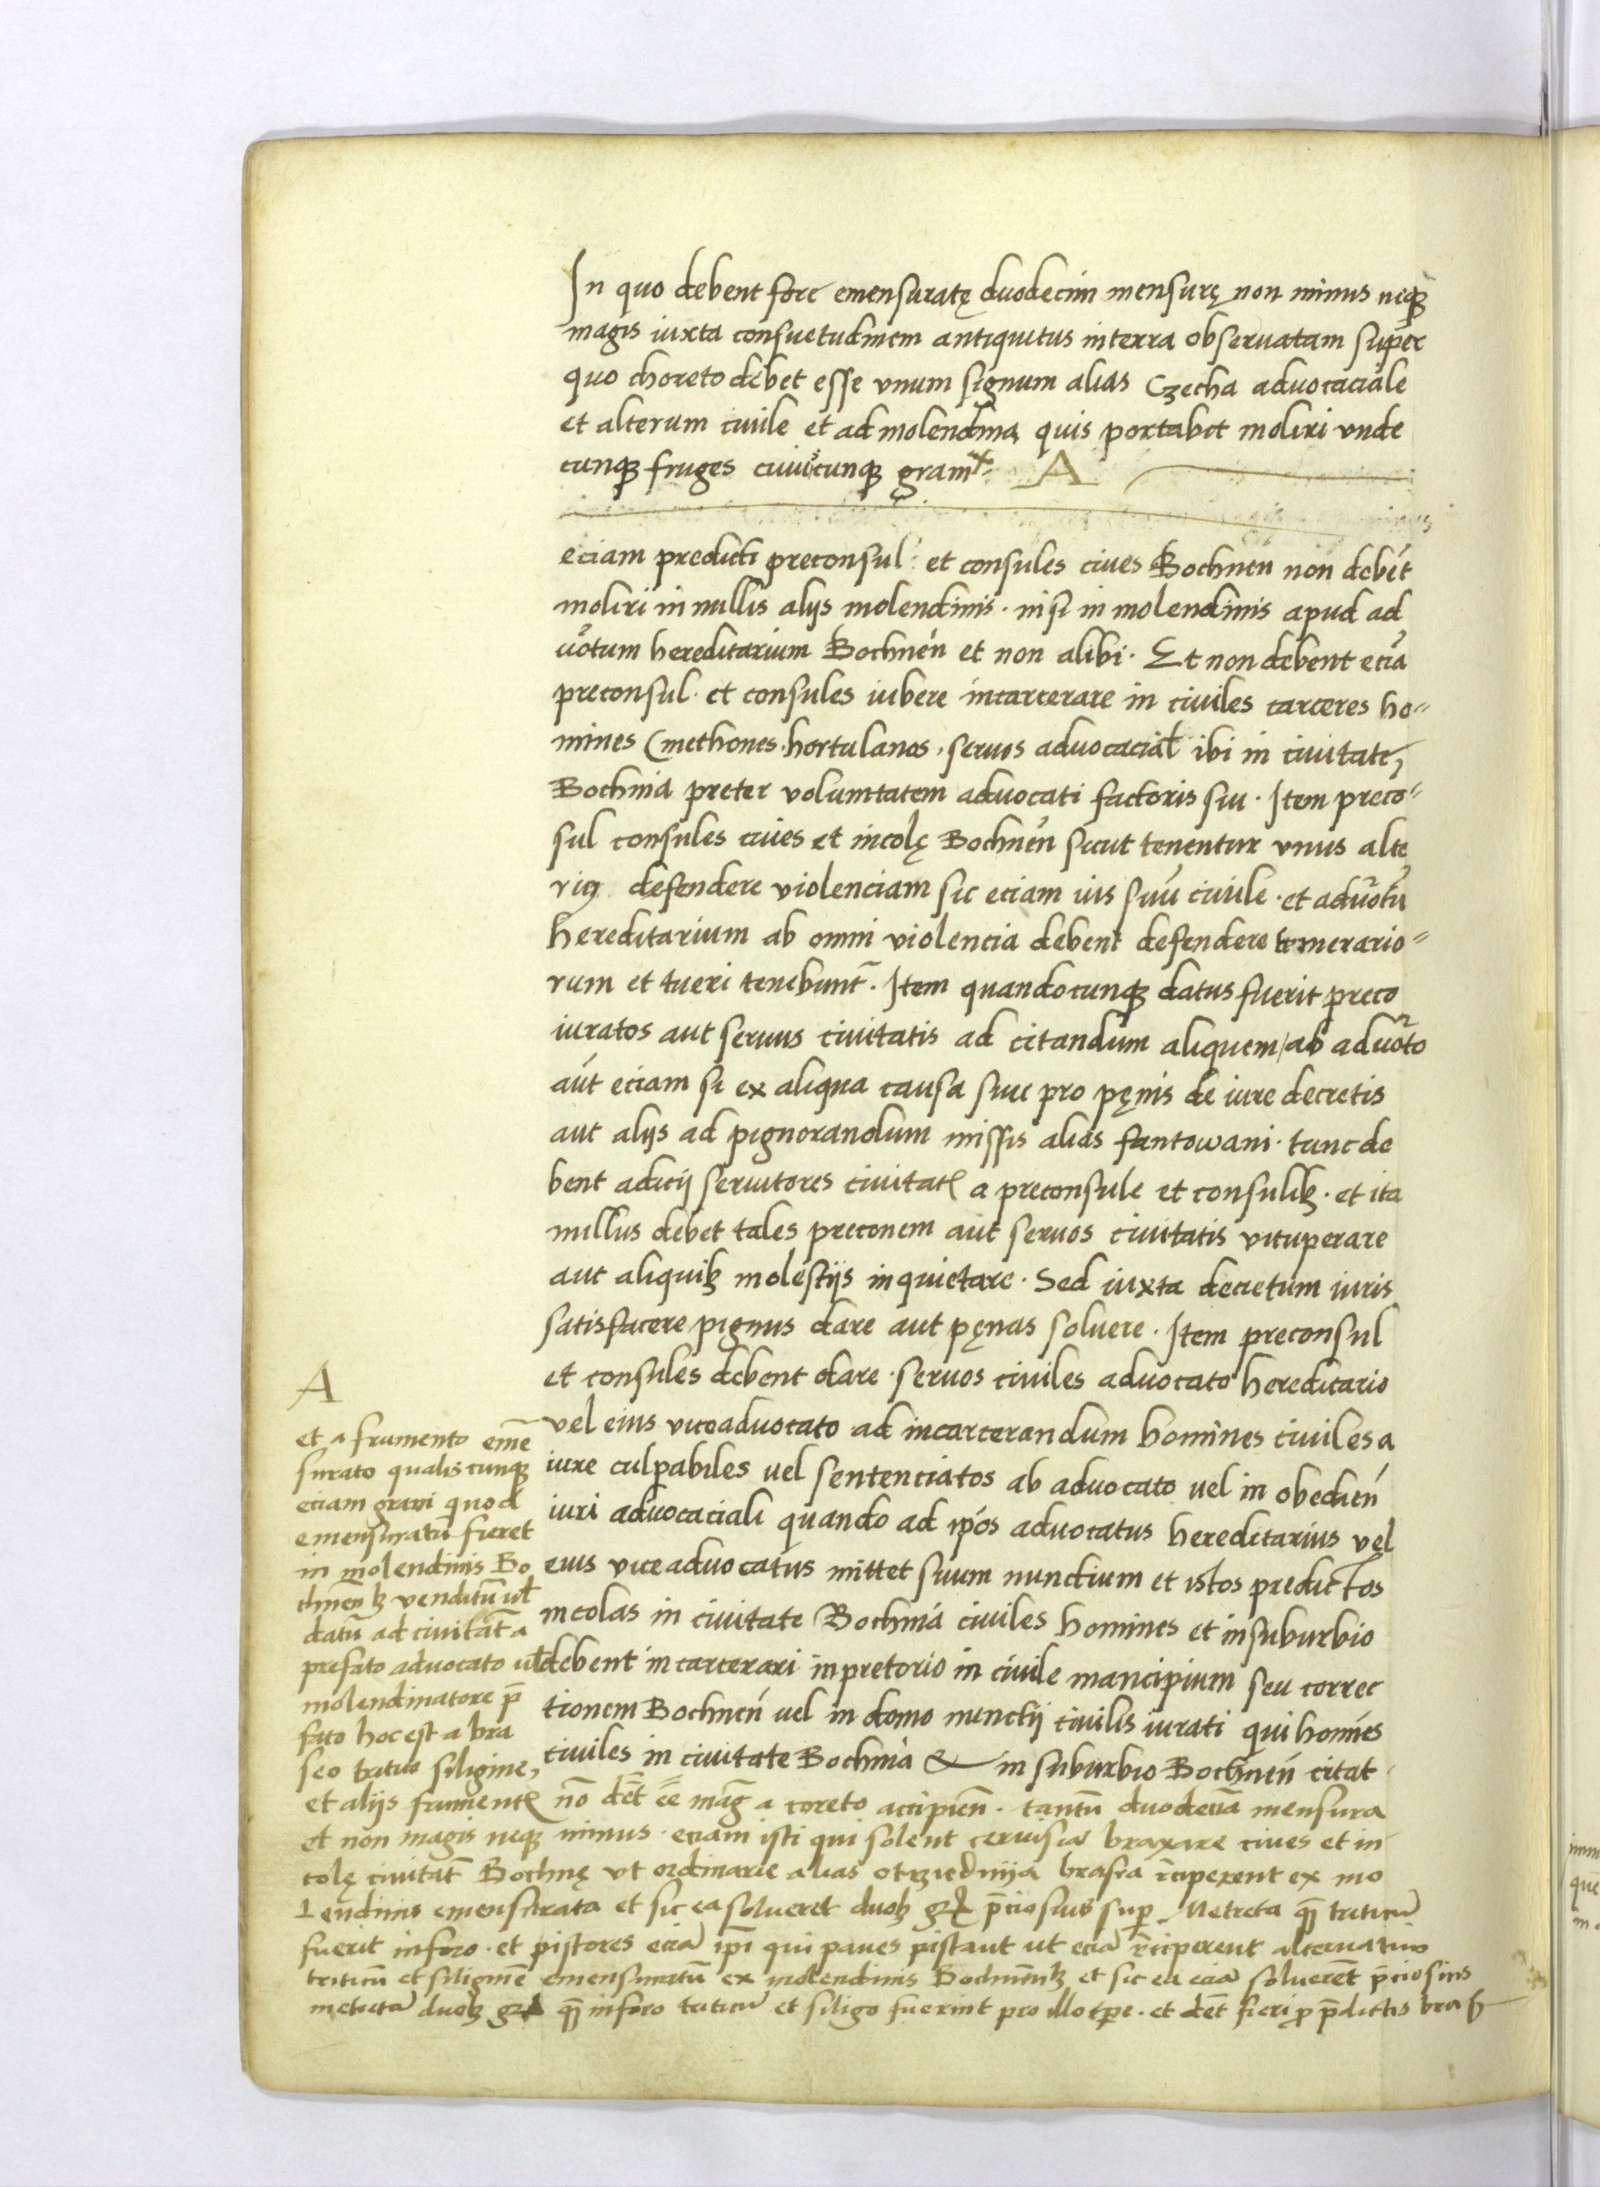 In quo debent fore emensuratę duodecim mensurę non minus neq3
magis iuxta consuetudinem antiquitus in terra obseruatam super
quo choreto debet esse vnum signum alias Czecha aduocaciale
et alterum ciuile et ad molendina quis portabit moliri vnde
cunq3 fruges cuiuscunq3 grani A
eciam predicti preconsul et consules ciues Bochnen non debēt
moliri in nullis alijs molendinis · nisi in molendinis apud ad
uotum hereditarium Bochnen et non alibi · Et non debent eciā
preconsul · et consules iubere incarcerare in ciuiles carceres ho-
mines Cmethones · hortulanos · seruos aduocacial ibi in ciuitate
Bochnia preter voluntatem aduocati factoris sui · Item preco-
sul consules ciues et incolę Bochnen sicut tenentur vnus alte
rius defendere violenciam sic eciam ius suū ciuile · et aduotū
hereditarium ab omni violencia debent defendere temerario-
rum et tueri tenebunt · Item quandocunq3 datus fuerit preco
iuratos aut seruus ciuitatis ad citandum aliquem / ab aduoto
aut eciam si ex aliqua causa siue pro pęnis de iure decretis
aut alijs ad pignorandum missis alias fantowani · tunc de
bent adicij seruitores ciuitatis a preconsule et consulib3 · et ita
nullus debet tales preconem aut seruos ciuitatis vituperare
aut aliquib3 molestijs inquietare · Sed iuxta decretum iuris
satisfacere pignus dare aut pęnas soluere · Item preconsul
et consules debent dare · seruos ciuiles aduocato hereditario
vel eius viceaduocato ad incarcerandum homines ciuiles a
iure culpabiles uel sentenciatos ab aduocato uel in obedien
iuri aduocaciali quando ad ipos aduocatus hereditarius vel
eius viceaduocatus mittet suum nunctium et istos predictos
incolas in ciuitate Bochnia ciuiles homines et in suburbio
debent incarcerari in pretorio in ciuile mancipium seu correc
tionem Bochnen uel in domo nunctij ciuilis iurati qui homies
ciuiles in ciuitate Bochnia & in suburbio Bochnen citat
A
et a frumento emē
surato qualiscunq3
eciam grani quod
emensuratū fieret
in molendinis Bo
chnen b3 venditū ul
datū ad ciuitat a
prefato aduocato ul
molendinatore p̄
fato hoc est a bra
seo tritico siligine,
et alijs frument nō det eē mag a coreto accipien · tantū duodecia mensura
et non magis neq3 minus · eciam isti qui solent ceruisia braxare ciues et in
colę ciuitat Bochnę vt ordinarie alias braseas reciperent ex mo
lendinis emensurata et sic ea solueret duob3 p̄ciosius sup metreta triticū
fuerit in foro · et pistores eciā ipi qui panes pistant ut eciā reciperent alternatim
triticū et siliginē emensuratū ex molendinis Bochnenb3 et sic ea eciā soluerēt p̄ciosius
metreta duob3 in foro triticū et siligo fuerint pro illo tpe · et det fieri p p̄dictis